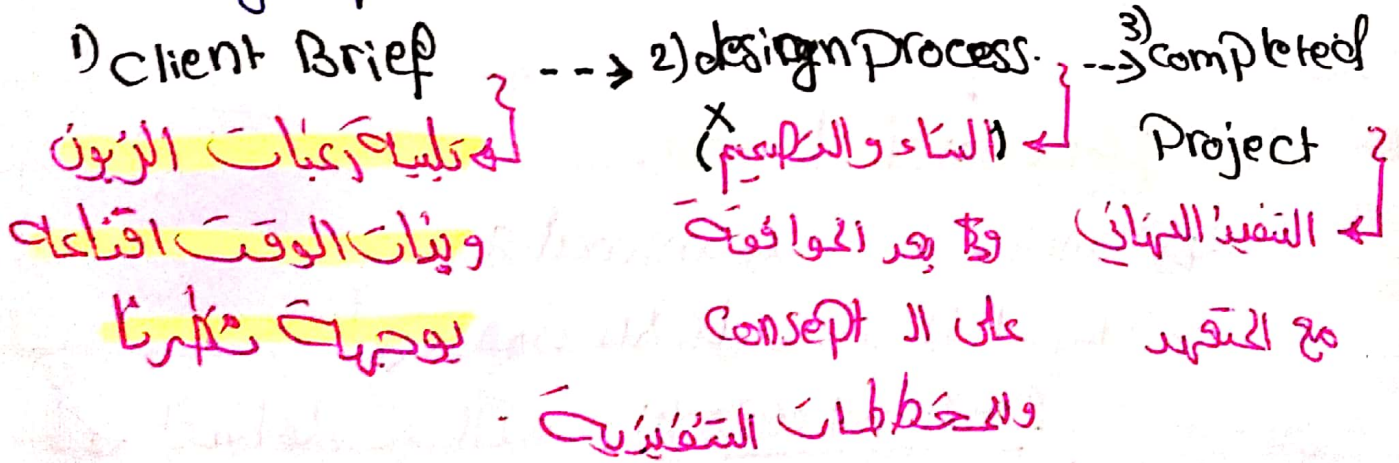 1) Client Brief --→ 2) desingn process. --→ 3) completed Project
تلبية رغبات الزبون
وبذات الوقت اقناعه
بوجهة نظرنا
(البناء والتصميم)
بعد الموافقة
على الـ Consept
والمخططات التنفيذية.
التنفيذ النهائي
مع المتعهد